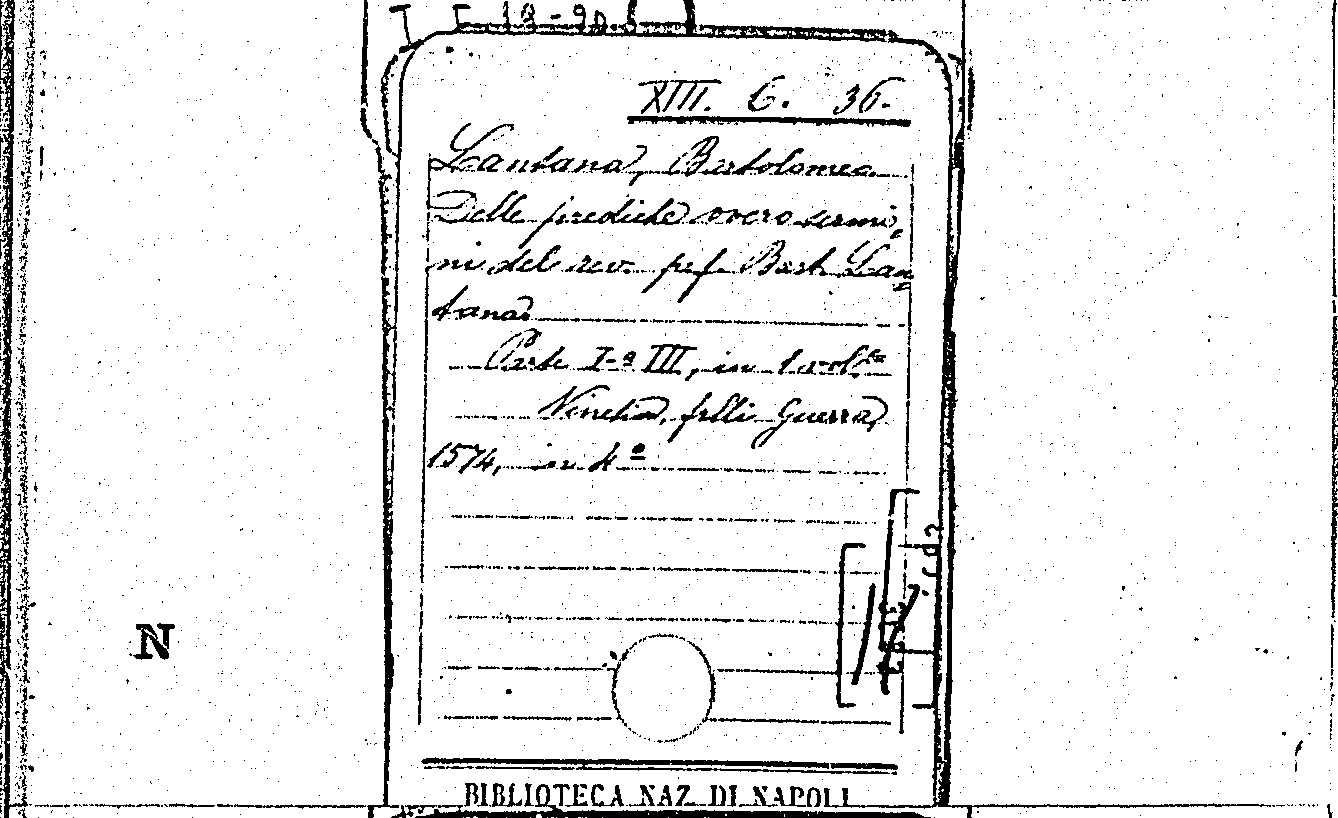 XIII. C. 36.
Lantana, Bartolomeo
Delle prediche overo sermo,
ni del rev. p. f. Bart. Lan,
tana.
Parte I-a III, in 1 vol.
Venetia, frlli Guerra,
1574, in 4º
N
BIBLIOTECA NAZ. DI NAPOLI